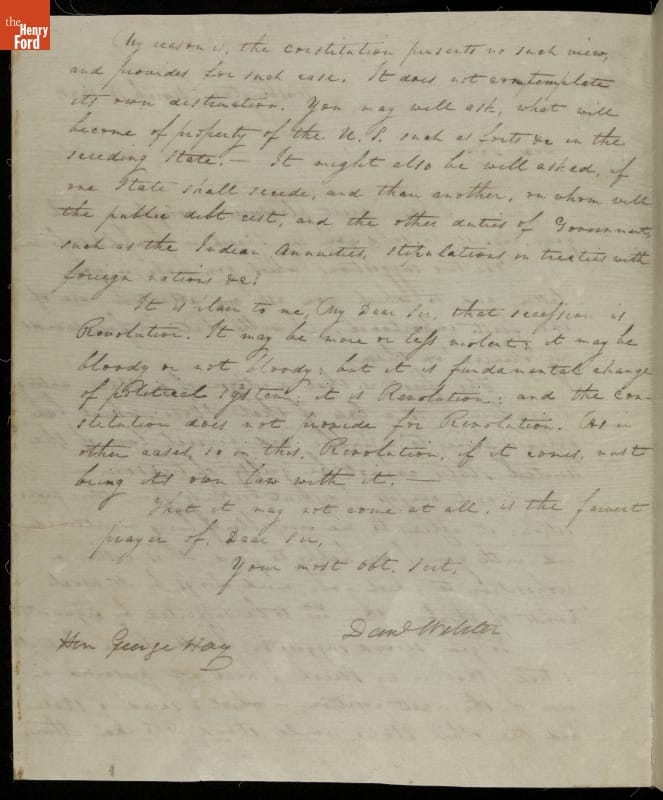 the
Henry
Ford
My reason is, the constitution presents no such view,
and provides for such case. It does not contemplate
its own destruction. You may well ask, what will
become of property of the U. S. such as forts &c in the
seceding State. — It might also be well asked, if
one State shall secede, and than another, on whom will
the public debt rest, and the other duties of Government,
such as the Indian Annuities, stipulations in treaties with
foreign nations &c?
It is plain to me, My Dear Sir, that secession is
Revolution. It may be more or less violent; it may be
bloody or not bloody; but it is fundamental change
of political system; it is Revolution; and the con-
stitution does not provide for Revolution. As in
other cases, so in this, Revolution, if it comes, must
bring its own law with it. —
That it may not come at all, is the fervent
prayer of, Dear Sir,
Your most obt. Servt.
Danl Webster
Hon George Hay